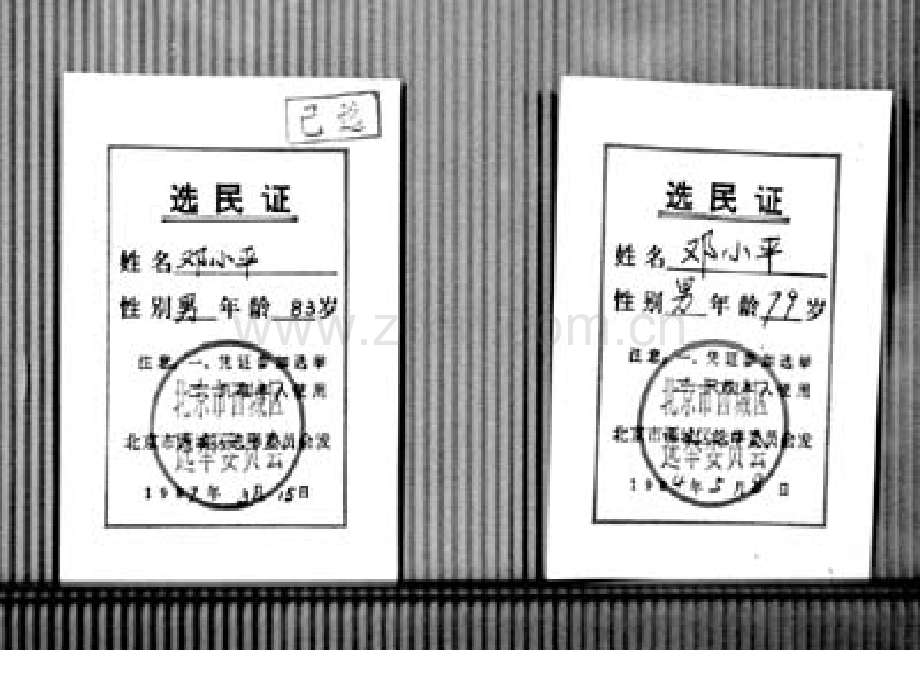 已选
选民证
姓名 邓小平
性别 男 年龄 83岁
注意:一、凭证参加选举
二、只限本人使用
北京市西城区选举委员会发
北京市西城区
选举委员会
1987年 月15日
选民证
姓名 邓小平
性别 男 年龄 79岁
注意:一、凭证参加选举
二、只限本人使用
北京市西城区选举委员会发
北京市西城区
选举委员会
1984年5月 日
www.zixin.com.cn